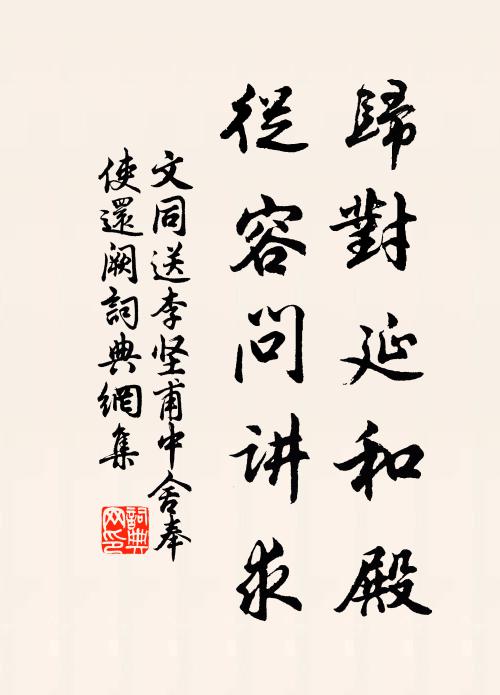 歸對延和殿
從容问讲求
文同送李坚甫中舍奉
使還阙詞典網集
詞典网印